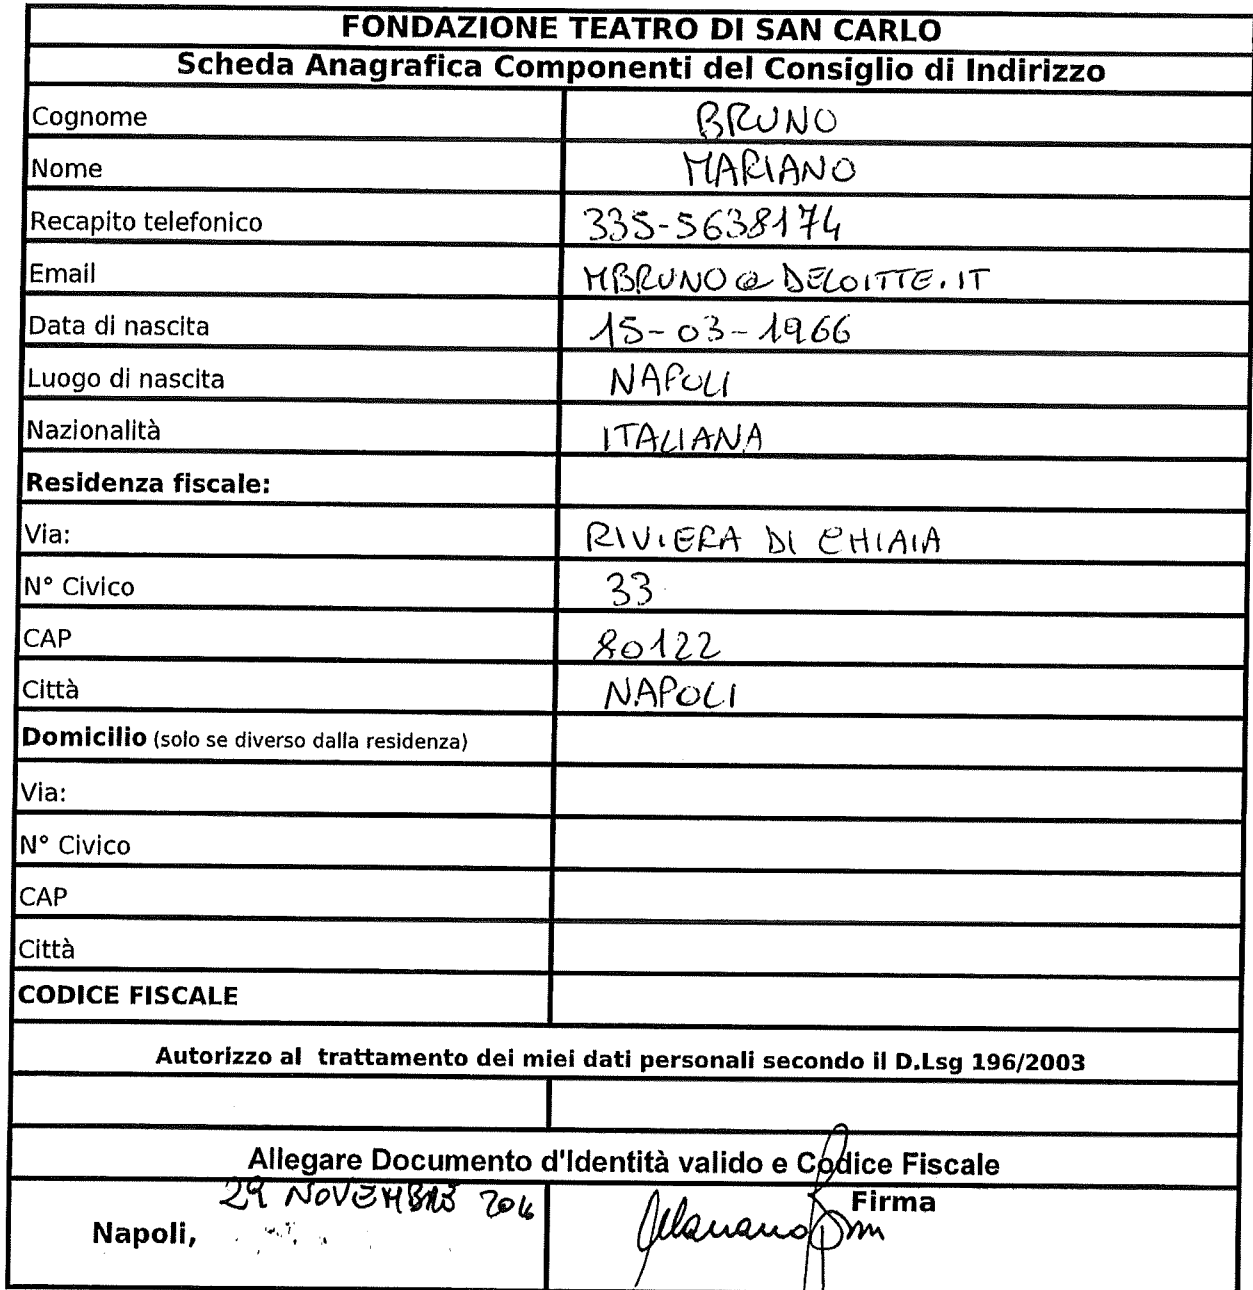 FONDAZIONE TEATRO DI SAN CARLO
Scheda Anagrafica Componenti del Consiglio di Indirizzo
Cognome BRUNO
Nome MARIANO
Recapito telefonico 335-5638174
Email MBRUNO@DELOITTE.IT
Data di nascita 15-03-1966
Luogo di nascita NAPOLI
Nazionalità ITALIANA
Residenza fiscale:
Via: RIVIERA DI CHIAIA
N° Civico 33
CAP 80122
Città NAPOLI
Domicilio (solo se diverso dalla residenza)
Via:
N° Civico
CAP
Città
CODICE FISCALE
Autorizzo al trattamento dei miei dati personali secondo il D.Lsg 196/2003
Allegare Documento d'Identità valido e Codice Fiscale
29 NOVEMBRE
Firma
Napoli,
Mariano